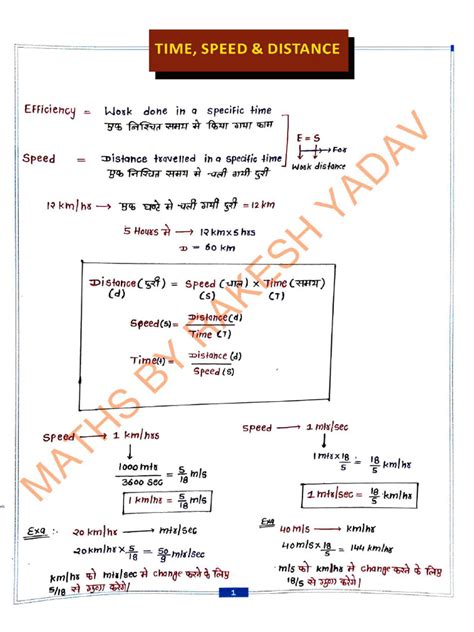 TIME, SPEED & DISTANCE
Efficiency = Work done in a specific time
एक निश्चित समय मे किया गया काम
E = S
→ For
Work distance
Speed = Distance travelled in a specific time
एक निश्चित समय मे चली गयी दुरी
12 km/hr → एक घण्टे मे चली गयी दुरी = 12 km
5 Hours मे → 12 km x 5 hrs
D = 60 km
Distance (दुरी) = Speed (चाल) x Time (समय)
(d) (S) (T)
Speed(s) = Distance (d) / Time (T)
Time(t) = Distance (d) / Speed (S)
Speed → 1 km/hrs
1000 mtr / 3600 Sec = 5/18 m/s
1 km/hr = 5/18 m/s
Exa :- 20 km/hr → mtr/sec
20 km/hr x 5/18 = 50/9 mtr/sec
km/hr को mtr/sec मे change करने के लिए
5/18 से गुणा करेंगे।
Speed → 1 mtr/sec
1 mtr x 18/5 = 18/5 km/hr
1 mtr/sec = 18/5 km/hr
Exa
40 m/s → km/hr
40 m/s x 18/5 = 144 km/hr
m/s को km/hr मे change करने के लिए
18/5 से गुणा करेंगे।
MATHS BY RAKESH YADAV
1